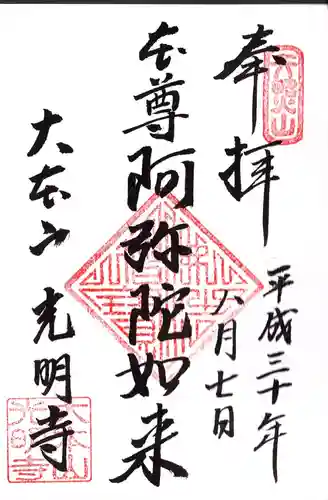 奉拝
天照山
平成三十年
六月七日
本尊阿弥陀如来
大本山光明寺
大本山
光明寺